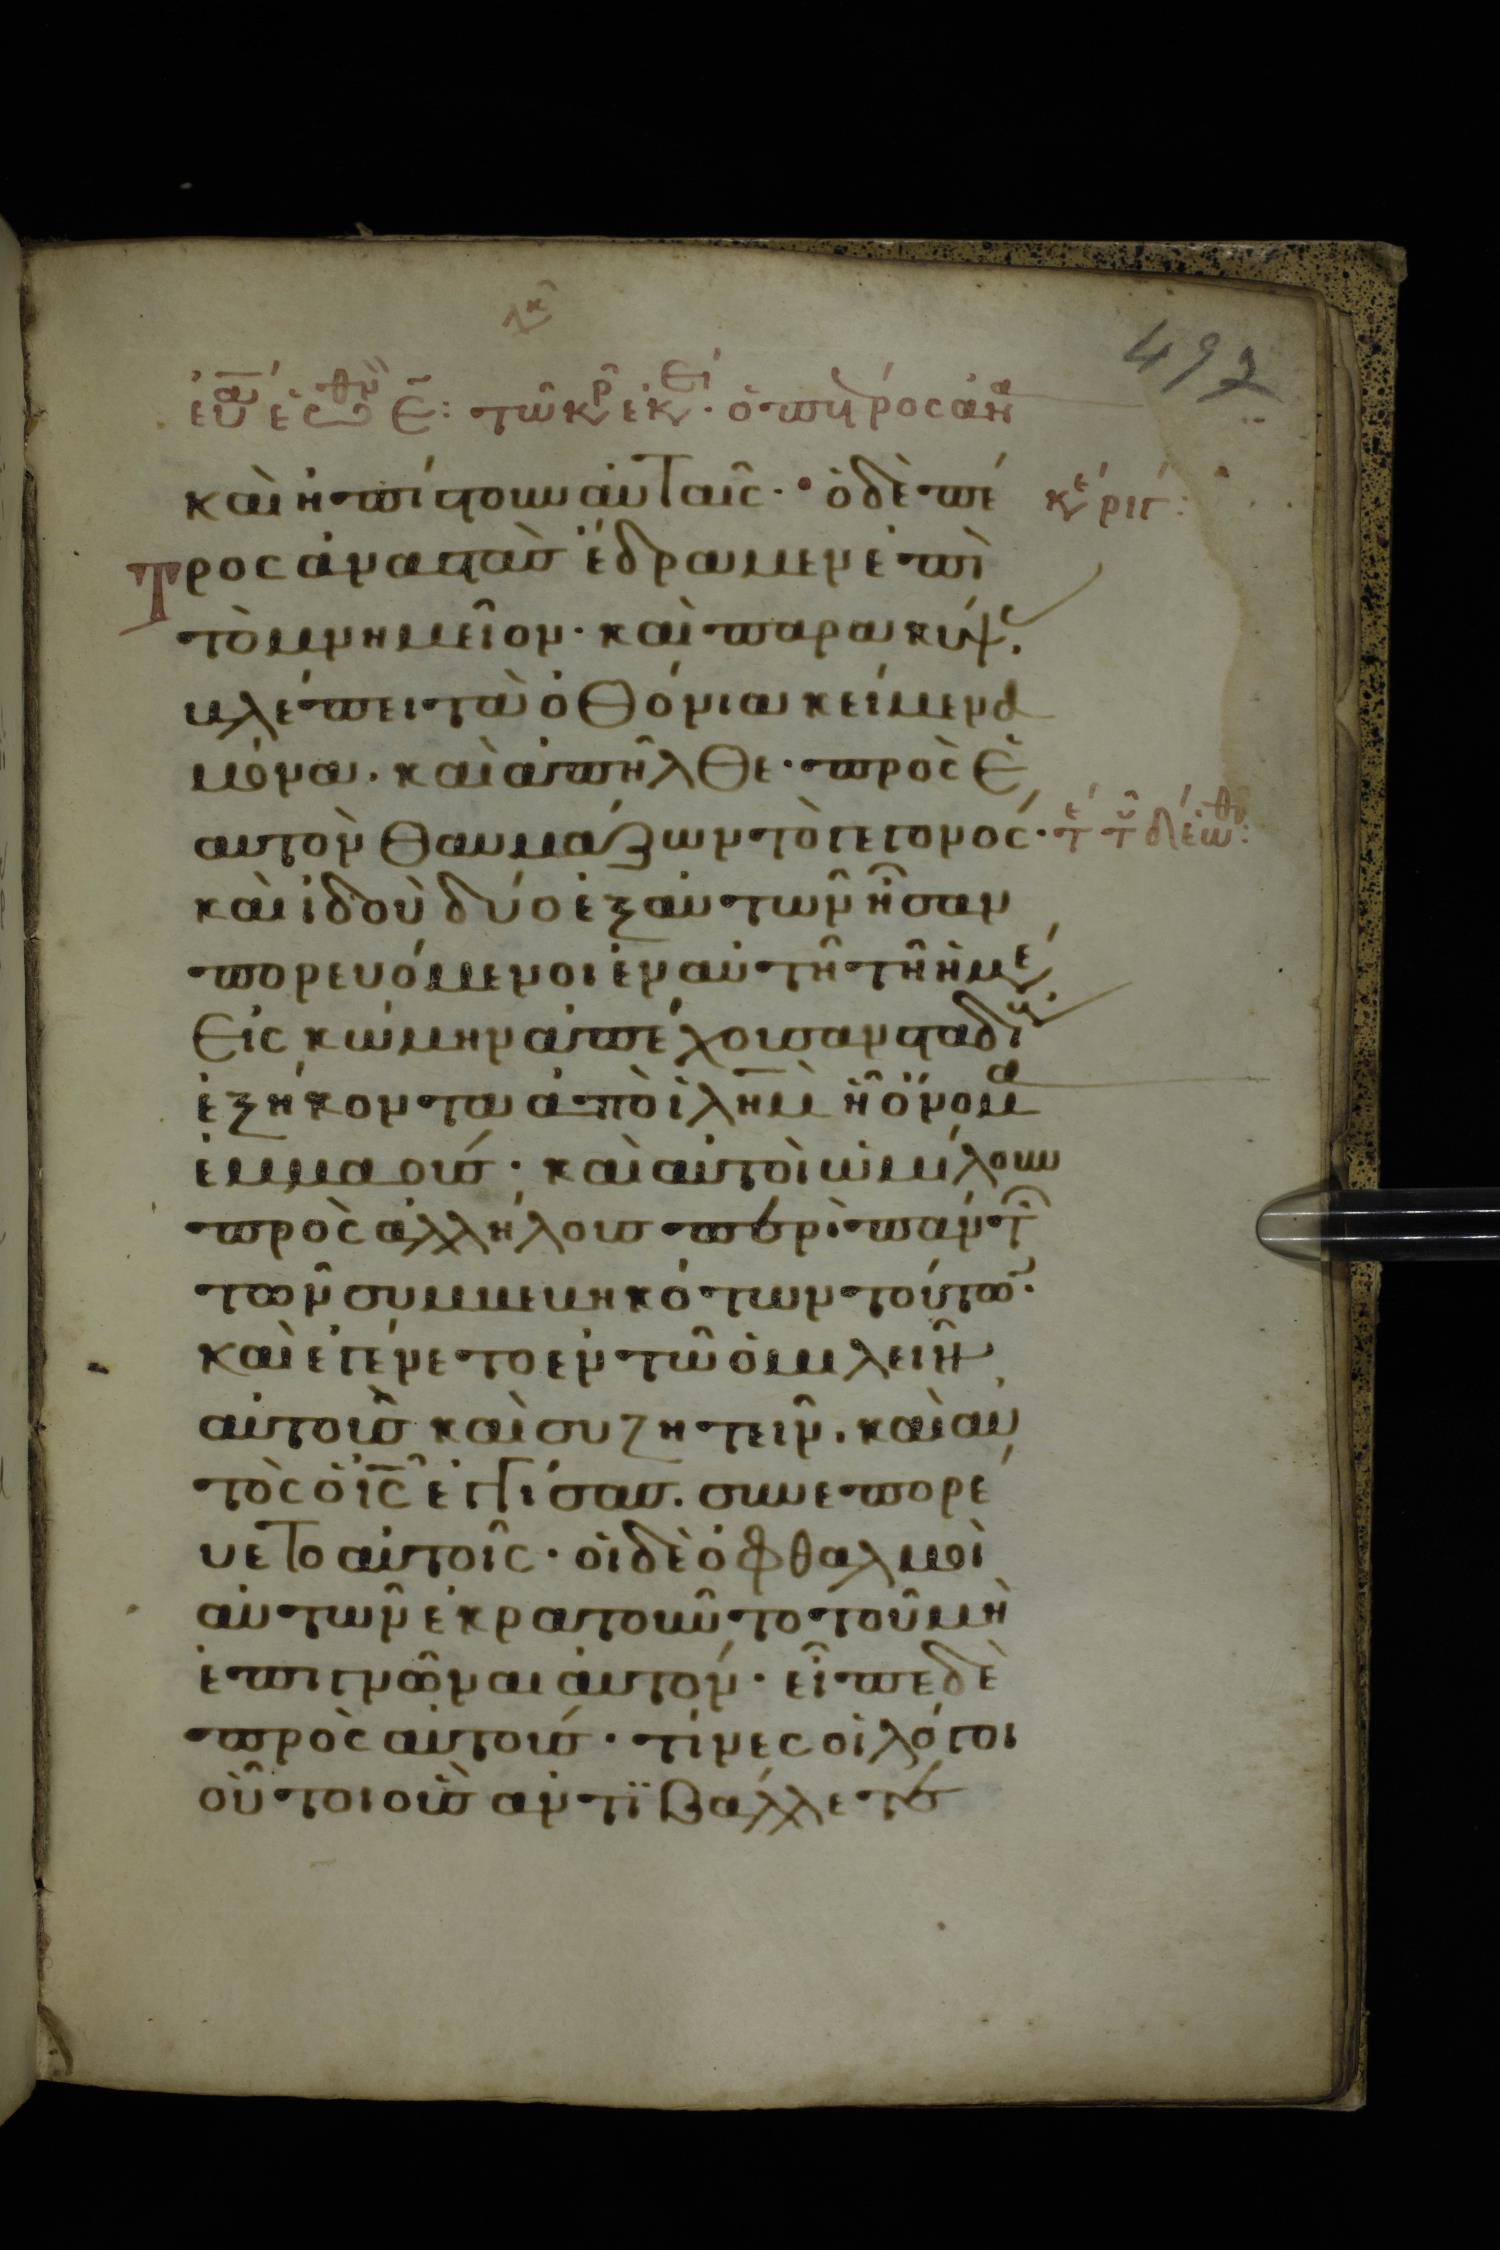 497
εὐα ἑωθιν Ε: τῶ κρ ἐκει · ὁ πέτρος ἀνα
καὶ ἠπίστουν αὐταῖς · ὁ δὲ πέ
κε ριγ :
τρος ἀναστὰσ ἔδραμεν ἐπὶ
τὸ μνημεῖον · καὶ παρακύψς
βλέπει τὰ ὀθόνια κείμενα
μόνα · καὶ ἀπῆλθε · πρὸς ἑ
αυτὸν θαυμάζων τὸ γεγονός ·
καὶ ἰδοὺ δύο ἐξ αὐτῶν ἦσαν
πορευόμενοι ἐν αὐτῆ τῆ ἡμέ
εἰς κώμην ἀπέχουσαν σταδί
ἑξήκοντα ἀπὸ ἱλῆμ ἧ ὄνομα
ἐμμαούσ · καὶ αὐτοὶ ὡμίλουν
πρὸς ἀλλήλουσ περὶ πάντ
τῶν συμβεβηκότων τούτω ·
καὶ ἐγένετο ἐν τῶ ὁμιλεῖν
αὐτοὺσ καὶ συζητεῖν · καὶ αὐ
τὸς ὁ ἰς ἐγγίσασ · συνεπορε
ύετο αὐτοῖς · οἱ δὲ ὀφθαλμοὶ
αὐτῶν ἐκρατοῦντο τοῦ μὴ
ἐπιγνῶναι αὐτόν · εἶπε δὲ
πρὸς αὐτούσ · τίνες οἱ λόγοι
οὗτοι οὓσ ἀντϊβάλλετε